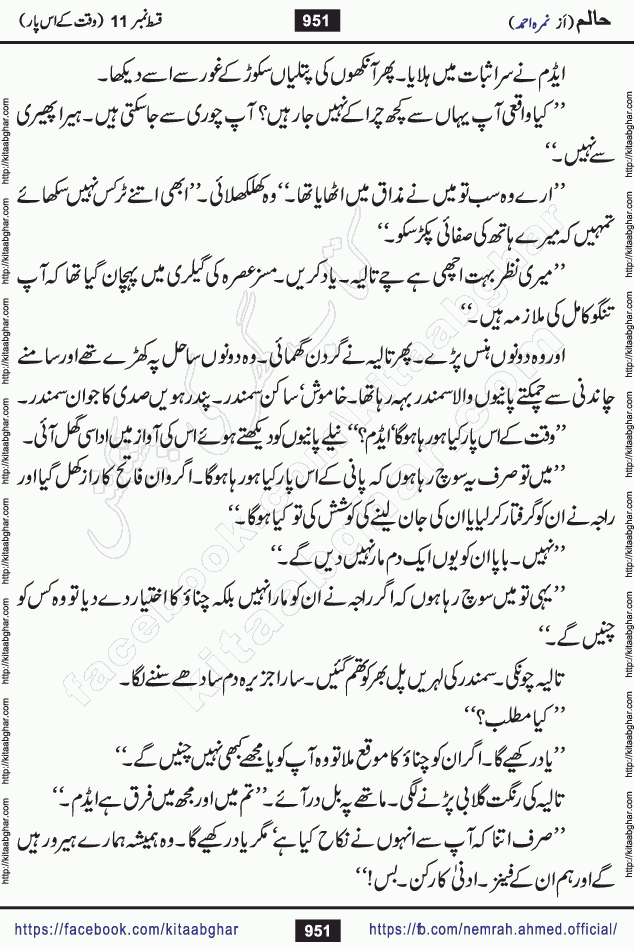 حالم (از نمرہ احمد) 951 قسط نمبر 11 (وقت کے اس پار)
ایڈم نے سر اثبات میں ہلایا۔ پھر آنکھوں کی پتلیاں سکوڑ کے غور سے اسے دیکھا۔
’’کیا واقعی آپ یہاں سے کچھ چرا کے نہیں جا رہیں؟ آپ چوری سے جا سکتی ہیں۔ ہیرا پھیری
سے نہیں۔‘‘
’’ارے وہ سب تو میں نے مذاق میں اٹھایا تھا۔‘‘ وہ کھلکھلائی۔ ’’ابھی اتنے ٹرکس نہیں سکھائے
تمہیں کہ میرے ہاتھ کی صفائی پکڑ سکو۔‘‘
’’میری نظر بہت اچھی ہے چے تالیہ۔ یاد کریں۔ مسز عصرہ کی گیلری میں پہچان گیا تھا کہ آپ
تنگو کامل کی ملازمہ ہیں۔‘‘
اور وہ دونوں ہنس پڑے۔ پھر تالیہ نے گردن گھمائی۔ وہ دونوں ساحل پہ کھڑے تھے اور سامنے
چاندنی سے چمکتے پانیوں والا سمندر بہہ رہا تھا۔ خاموش‘ ساکن سمندر۔ پندرہویں صدی کا جوان سمندر۔
’’وقت کے اس پار کیا ہو رہا ہوگا‘ ایڈم؟‘‘ نیلے پانیوں کو دیکھتے ہوئے اس کی آواز میں اداسی گھل آئی۔
’’میں تو صرف یہ سوچ رہا ہوں کہ پانی کے اس پار کیا ہو رہا ہوگا۔ اگر وان فاتح کا راز کھل گیا اور
راجہ نے ان کو گرفتار کر لیا یا ان کی جان لینے کی کوشش کی تو کیا ہوگا۔‘‘
’’نہیں۔ باپا ان کو یوں ایک دم مار نہیں دیں گے۔‘‘
’’یہی تو میں سوچ رہا ہوں کہ اگر راجہ نے ان کو مارا نہیں بلکہ چناؤ کا اختیار دے دیا تو وہ کس کو
چنیں گے۔‘‘
تالیہ چونکی۔ سمندر کی لہریں پل بھر کو تھم گئیں۔ سارا جزیرہ دم سادھے سننے لگا۔
’’کیا مطلب؟‘‘
’’یاد رکھیے گا۔ اگر ان کو چناؤ کا موقع ملا تو وہ آپ کو یا مجھے کبھی نہیں چنیں گے۔‘‘
تالیہ کی رنگت گلابی پڑنے لگی۔ ماتھے پہ بل در آئے۔ ’’تم میں اور مجھ میں فرق ہے ایڈم۔‘‘
’’صرف اتنا کہ آپ سے انہوں نے نکاح کیا ہے‘ مگر یاد رکھیے گا۔ وہ ہمیشہ ہمارے ہیرو رہیں
گے اور ہم ان کے فینز۔ ادنیٰ کارکن۔ بس!‘‘
https://facebook.com/kitaabghar 951 https://fb.com/nemrah.ahmed.official/
http://kitaabghar.com http://kitaabghar.com http://kitaabghar.com http://kitaabghar.com http://kitaabghar.com http://kitaabghar.com http://kitaabghar.com http://kitaabghar.com
http://kitaabghar.com http://kitaabghar.com http://kitaabghar.com http://kitaabghar.com http://kitaabghar.com http://kitaabghar.com http://kitaabghar.com http://kitaabghar.com
کتاب گھر کی پیشکش
facebook.com/kitaabghar
kitaabghar.com